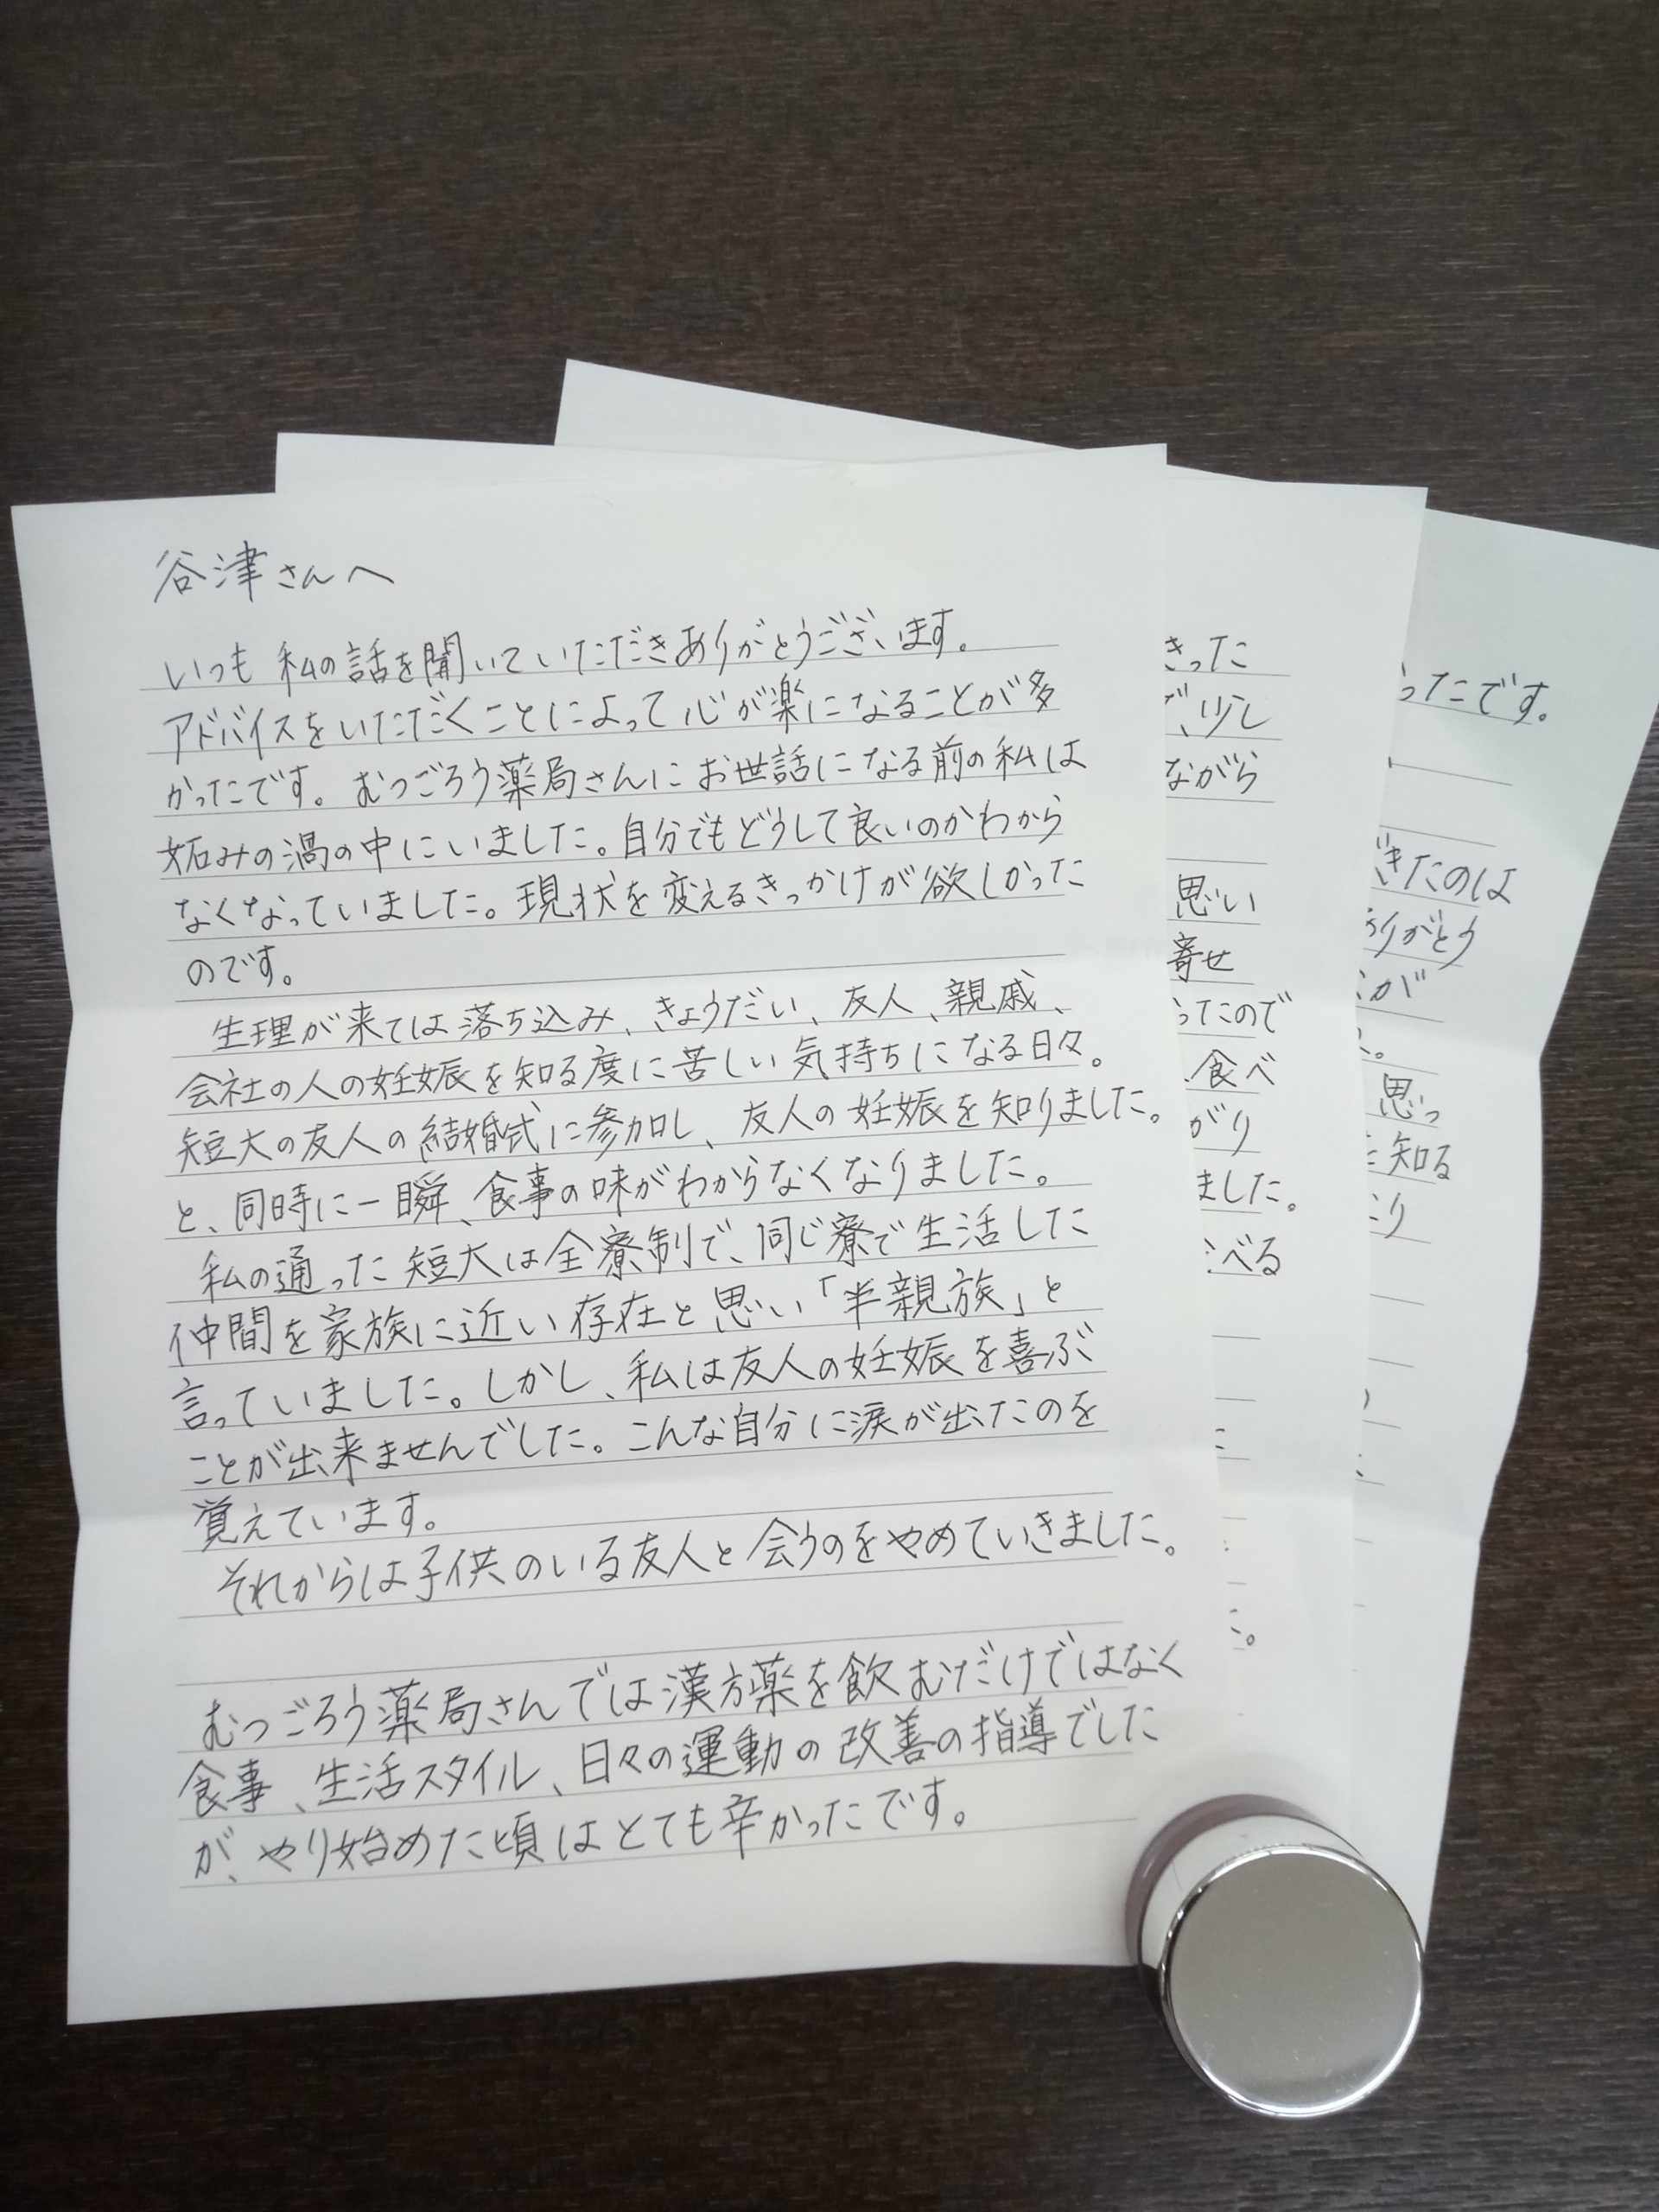 谷津さんへ
いつも私の話を聞いていただきありがとうございます。
アドバイスをいただくことによって心が楽になることが多
かったです。むつごろう薬局さんにお世話になる前の私は
妬みの渦の中にいました。自分でもどうして良いのかわから
なくなっていました。現状を変えるきっかけが欲しかった
のです。
生理が来ては落ち込み、きょうだい、友人、親戚、
会社の人の妊娠を知る度に苦しい気持ちになる日々。
短大の友人の結婚式に参加し、友人の妊娠を知りました。
と、同時に一瞬、食事の味がわからなくなりました。
私の通った短大は全寮制で、同じ寮で生活した
仲間を家族に近い存在と思い「半親族」と
言っていました。しかし、私は友人の妊娠を喜ぶ
ことが出来ませんでした。こんな自分に涙が出たのを
覚えています。
それからは子供のいる友人と会うのをやめていきました。
むつごろう薬局さんでは漢方薬を飲むだけではなく
食事、生活スタイル、日々の運動の改善の指導でした
が、やり始めた頃はとても辛かったです。
きった
で、少し
ながら
思い
寄せ
ったので
、食べ
がり
ました。
べる
ったです。
きたのは
りがとう
が
思っ
知る
り